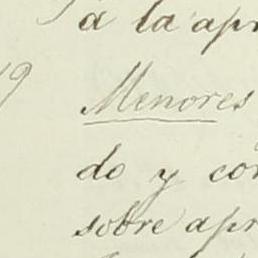 á la apr
19
Menores
do y con
sobre apr